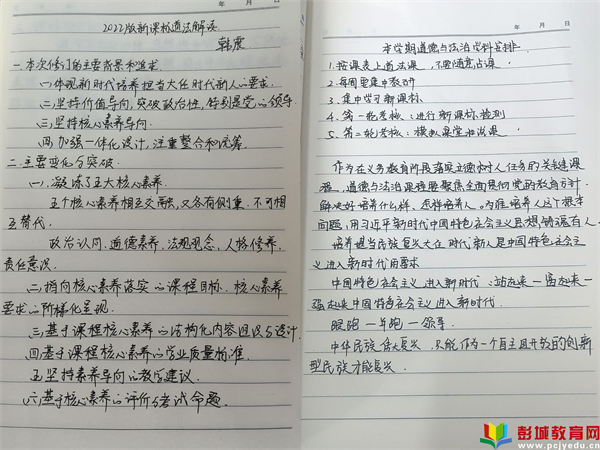 年 月 日
2022版新课标道法解读
韩震
一.本次修订的主要背景和追求
(一)体现新时代培养担当大任时代新人的要求.
(二)坚持价值导向,突破政治性,特别是党的领导
(三)坚持核心素养导向.
(四)加强一体化设计,注重整合和统筹
二.主要变化与突破.
(一).凝练了五大核心素养.
五个核心素养相互交融,又各有侧重,不可相
互替代.
政治认同、道德素养,法规观念,人格修养,
责任意识.
(二)指向核心素养落实的课程目标、核心素养
要求的阶梯化呈现.
(三)基于课程核心素养的结构化内容组织与设计.
(四)基于课程核心素养的学业质量标准.
(五)坚持素养导向的教学建议.
(六)基于核心素养的评价与考试命题.
年 月 日
本学期道德与法治学科安排
1.按课表上道法课,不要随意占课.
2.每周要集中教研
3.集中学习新课标
4.第一轮考核:进行新课标检测
5.第二轮考核:模拟课堂和说课
作为在义务教育阶段落实立德树人任务的关键课
程,道德与法治课程要聚焦全面贯彻党的教育方针
解决好培养什么样、怎样培养人、为谁培养人这个根本
问题,用习近平新时代中国特色社会主义思想,铸魂育人.
培养担当民族复兴大任时代新人是中国特色社会主
义进入新时代的要求
中国特色社会主义进入新时代,站起来一富起来一
强起来中国特色社会主义进入新时代.
跟跑一并跑一领导.
中华民族伟大复兴,只能作为一个自主且开放的创新
型民族才能复兴
彭城教育网
www.pcjyedu.cn